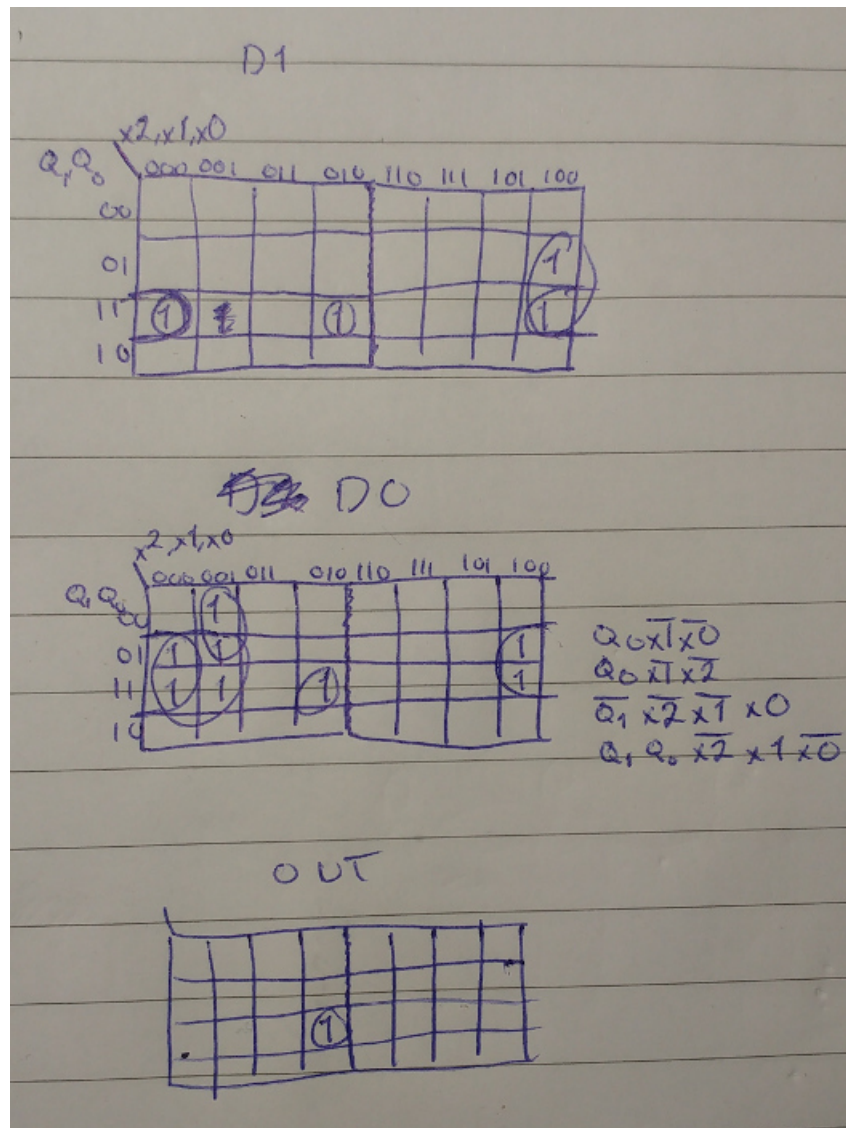 D1
x2,x1,x0
Q₁Q₀ 000 001 011 010 110 111 101 100
00
01 1
11 1 1 1
10
D0
x2,x1,x0
Q₁Q₀ 000 001 011 010 110 111 101 100
00 1
01 1 1 1
11 1 1 1 1
10
Q₀ x̅1̅ x̅0̅
Q₀ x̅1̅ x̅2̅
Q̅₁ x̅2̅ x̅1̅ x0
Q₁ Q₀ x̅2̅ x1 x̅0̅
OUT
1